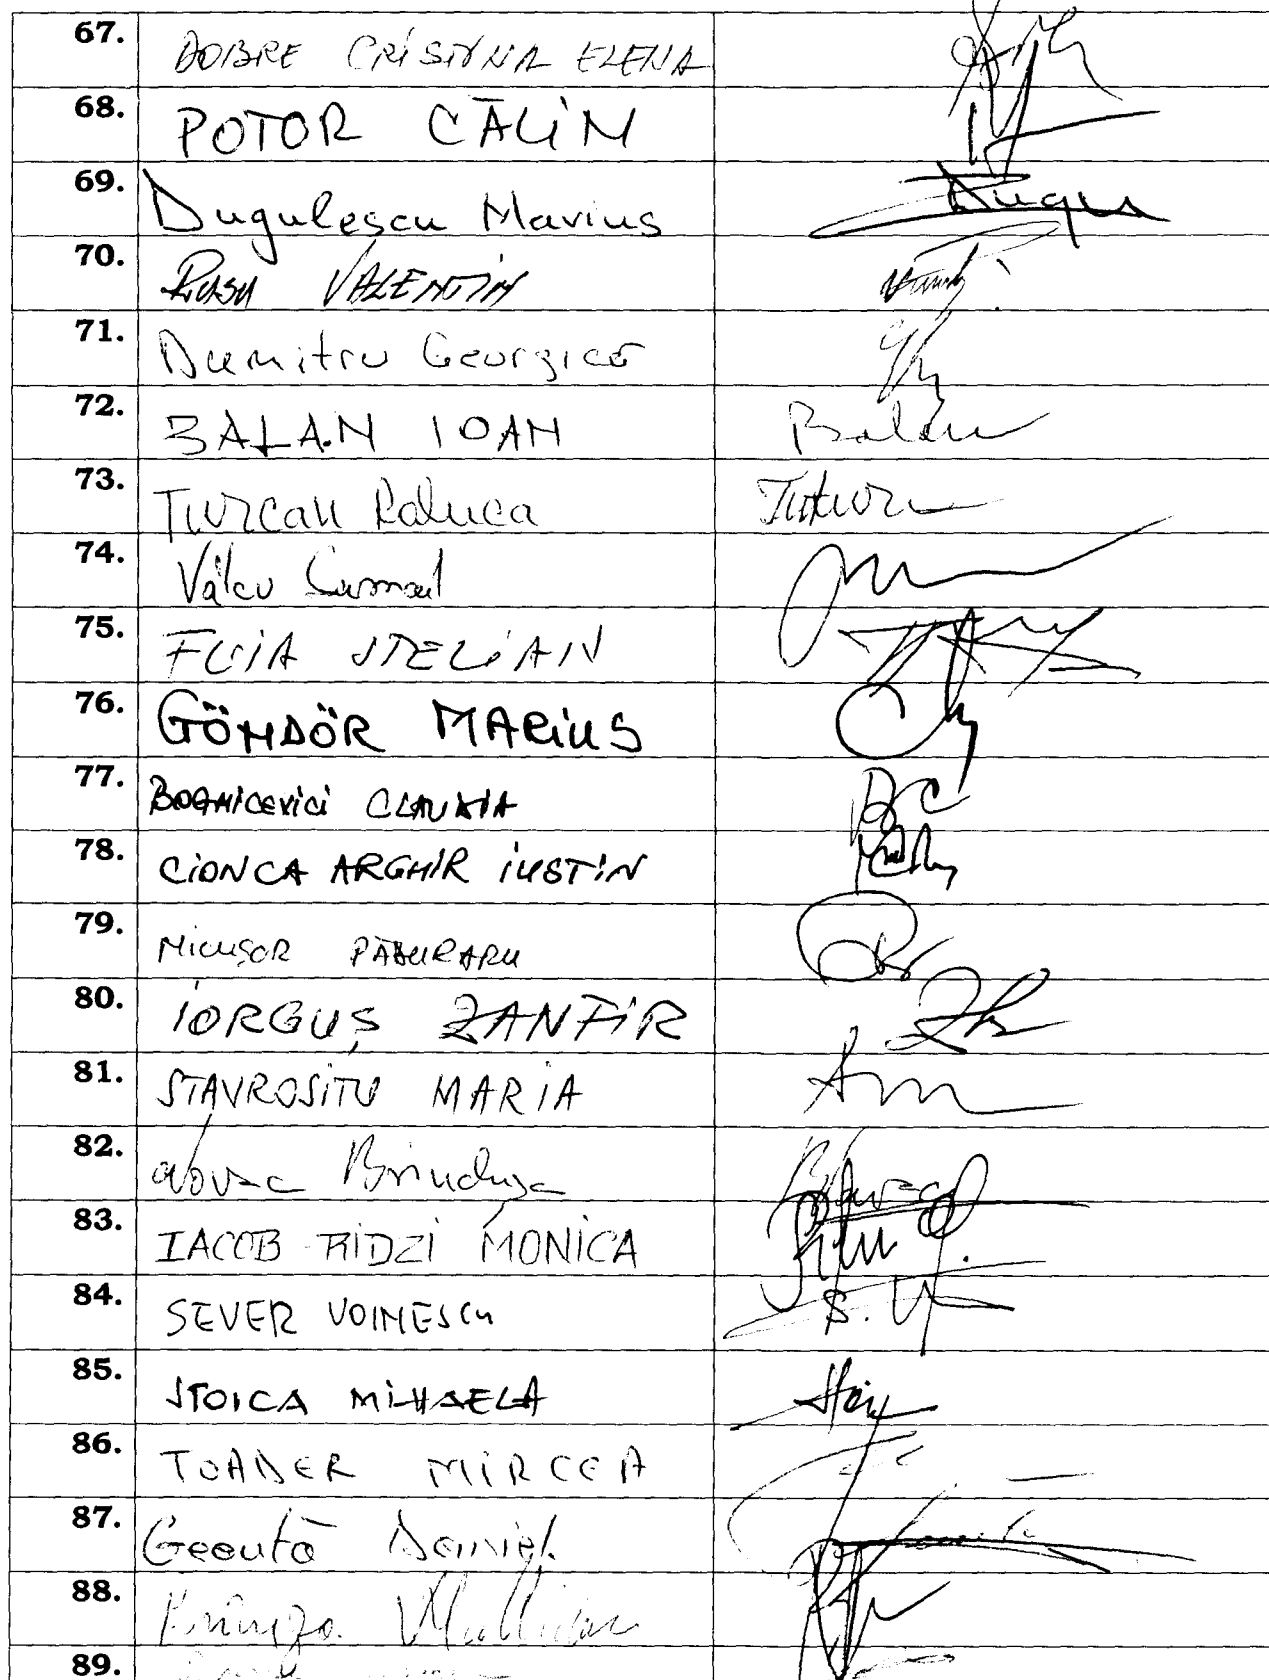 67. DOBRE CRISTINA ELENA
68. POTOR CĂLIN
69. Dugulescu Marius Dugu
70. RUSU VALENTIN
71. Dumitru Georgică
72. BALAN IOAN Balan
73. Turcan Raluca
74. Vâlcu
75. FUIA STELIAN
76. GÖNDÖR MARIUS
77. BOGHICEVICI CLAUDIA BC
78. CIONCA ARGHIR IUSTIN
79. MICUȘOR PĂDURARU
80. IORGUȘ ZANFIR
81. STAVROSITU MARIA
82. Novac Brîndușa
83. IACOB RIDZI MONICA
84. SEVER VOINESCU S. V.
85. STOICA MIHAELA
86. TOADER MIRCEA
87. Geantă Daniel
88.
89.